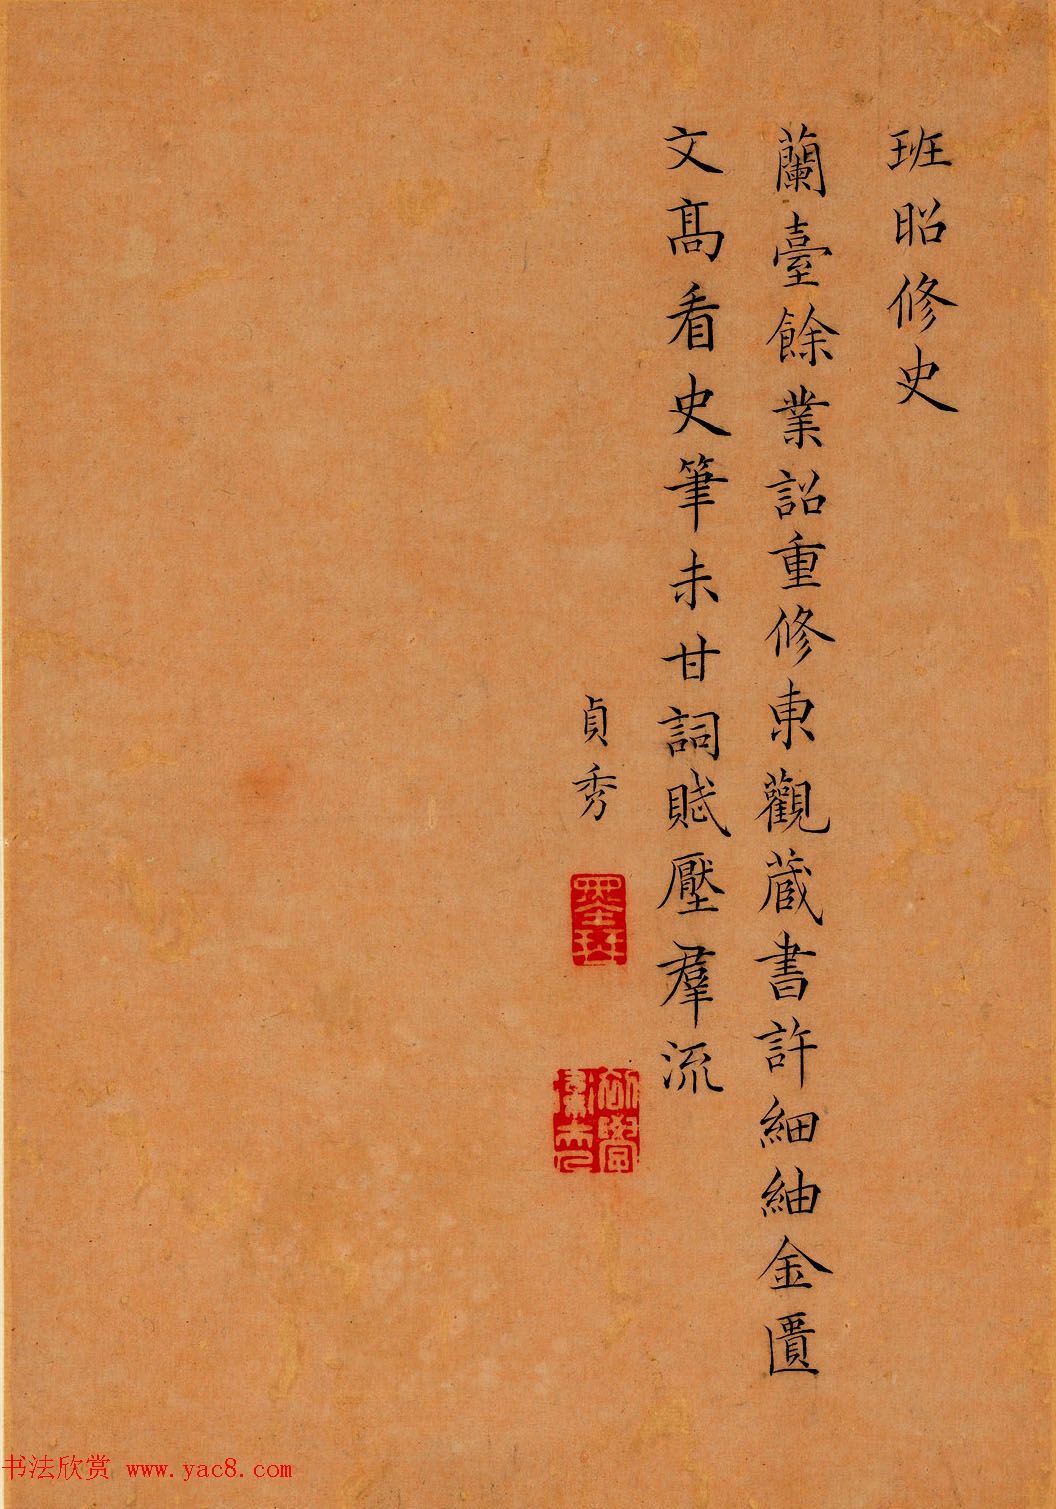 班昭修史
蘭臺餘業詔重修東觀蔵書許細紬金匱
文髙看史筆未甘詞賦壓羣流
貞秀
墨琴
書法欣赏 www.yac8.com